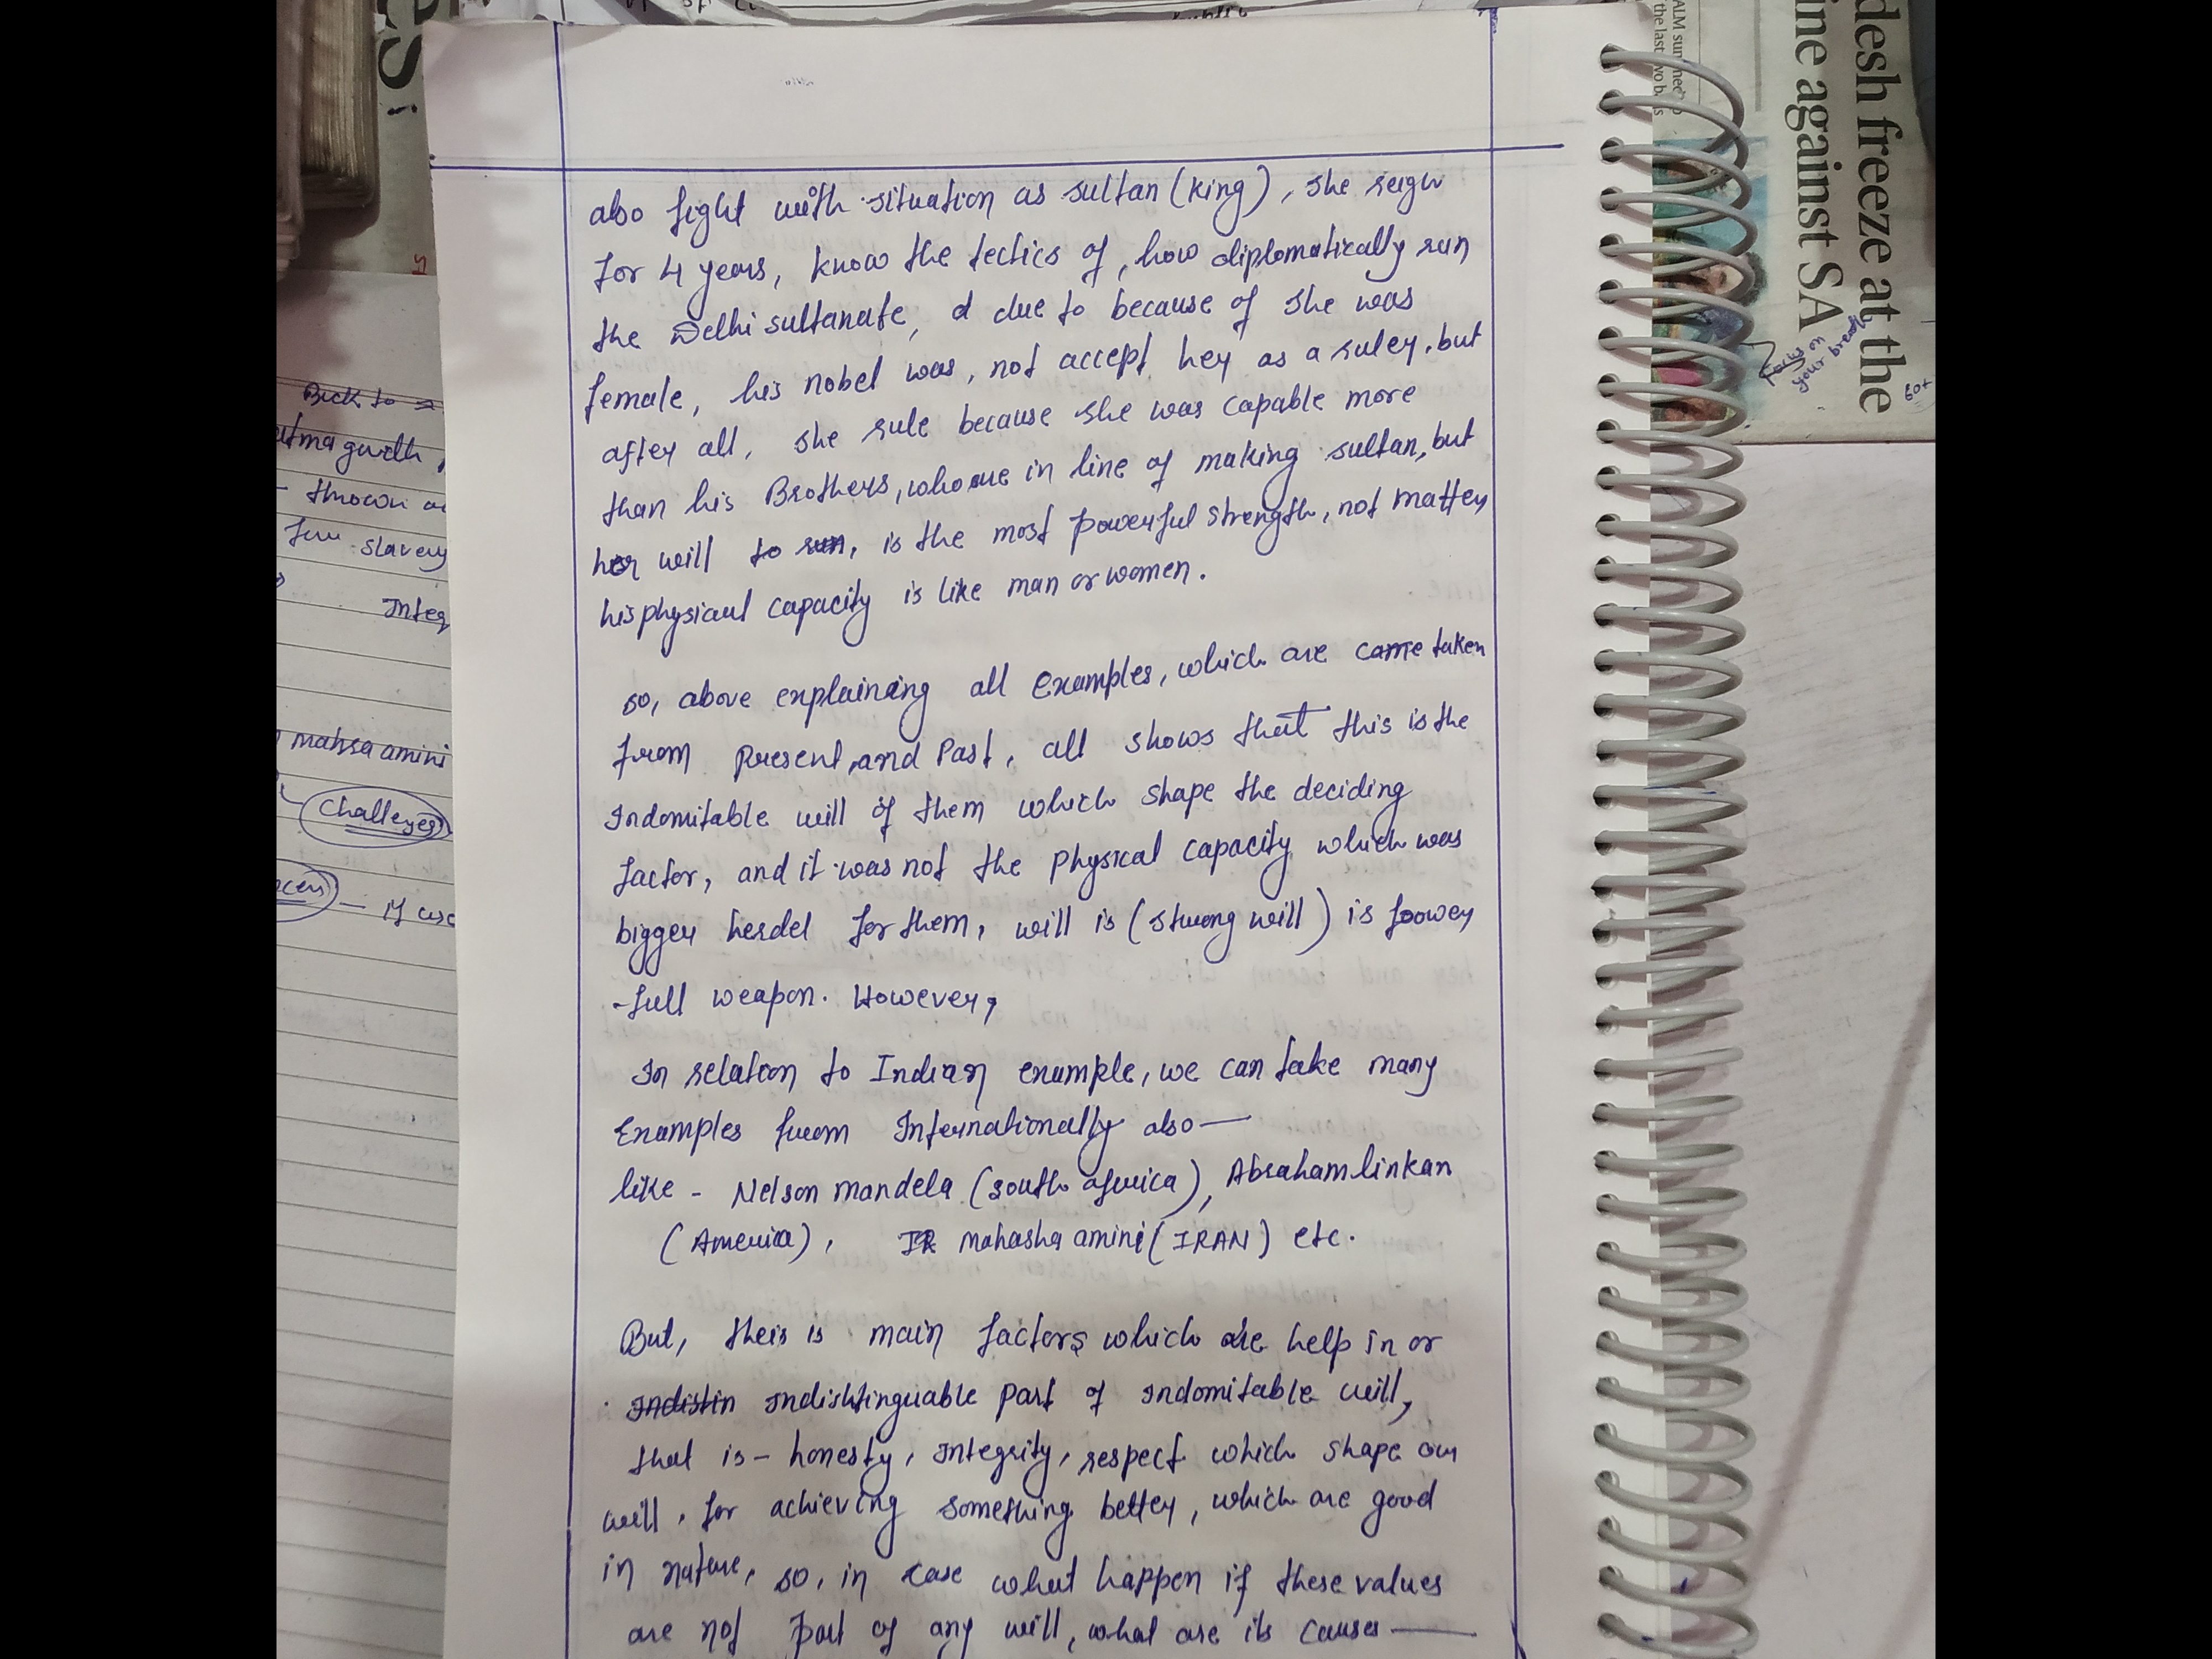 desh freeze at the
ine against SA
the last two b
Focus on
your breath
60+
Back to
atma gandh
thrown
slavery
Integ
mahsa amini
Challenges
also fight with situation as sultan (king), she reign
for 4 years, know the tectics of, how diplomatically run
the Delhi sultanate, d due to because of she was
female, his nobel was, not accept hey as a ruley, but
after all, she rule because she was capable more
than his Brothers, who are in line of making sultan, but
her will to run, is the most powerful strength, not matter
his physical capacity is like man or women.
so, above explaining all examples, which are came taken
from Present, and Past, all shows that this is the
Indomitable will of them which shape the deciding
factor, and it was not the physical capacity which was
bigger herdel for them, will is (strong will) is powey
-full weapon. However,
In relation to Indian example, we can take many
Examples from Internationally also—
like - Nelson mandela (south africa), Abraham linkan
(America), IR mahasha amini (IRAN) etc.
But, theis is main factors which are help in or
Indistin Indishtinguable part of Indomitable will,
that is - honesty, Integrity, respect which shape our
will, for achieving something bettey, which are good
in nature, so, in case what happen if these values
are not part of any will, what are its causes —